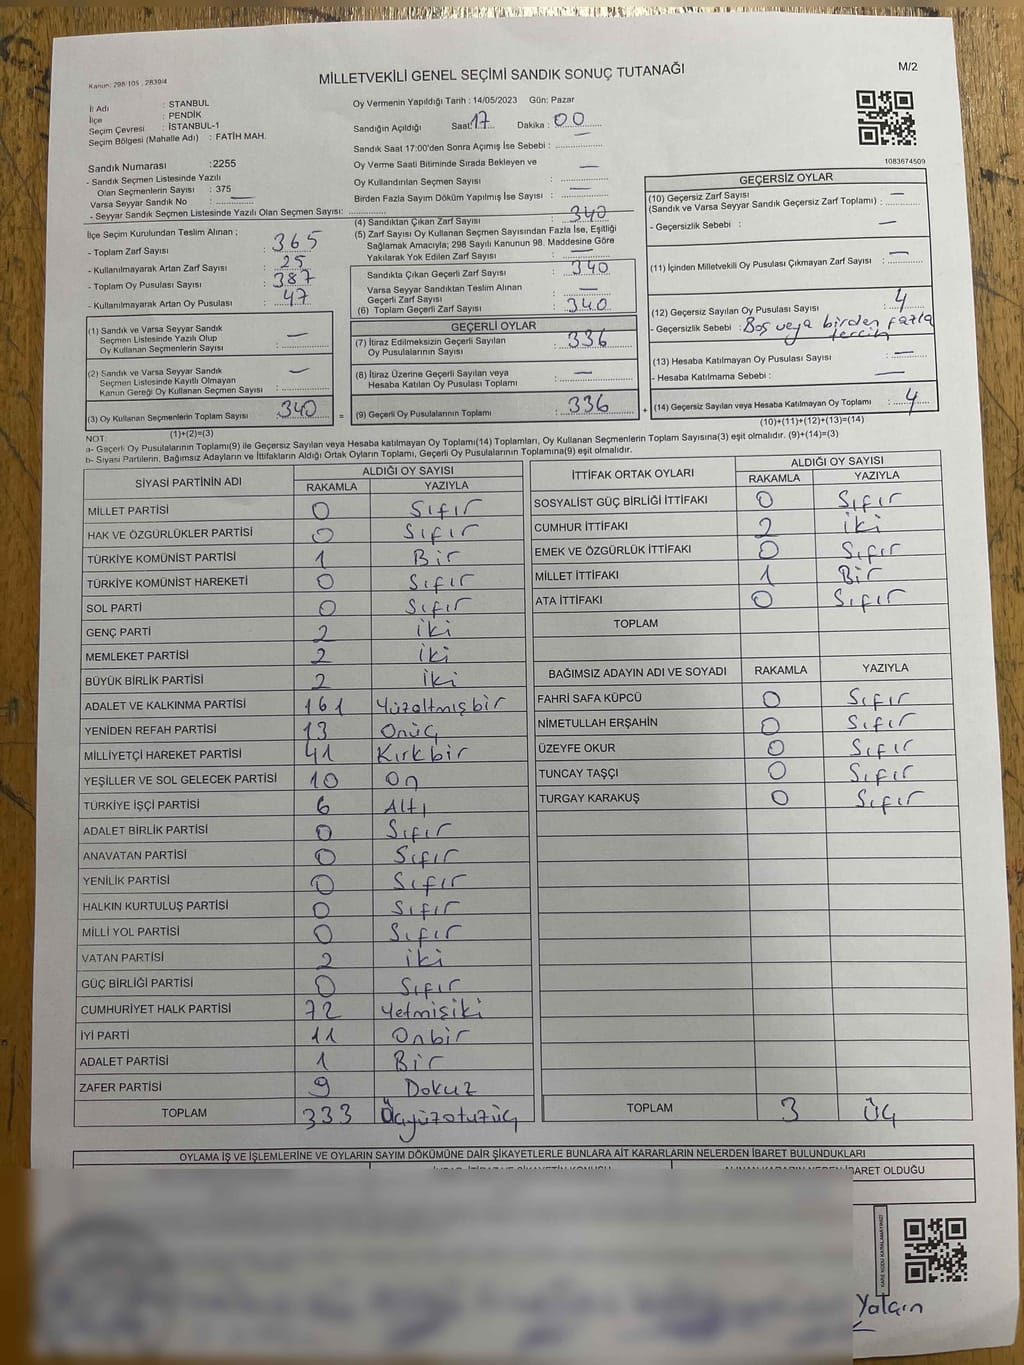 Kanun: 298/105 , 2839/4
MİLLETVEKİLİ GENEL SEÇİMİ SANDIK SONUÇ TUTANAĞI
M/2
İl Adı : STANBUL
İlçe : PENDİK
Seçim Çevresi : İSTANBUL-1
Seçim Bölgesi (Mahalle Adı) : FATİH MAH.
Oy Vermenin Yapıldığı Tarih : 14/05/2023 Gün: Pazar
Sandığın Açıldığı Saat: 17 Dakika : 00
Sandık Saat 17:00'den Sonra Açımış İse Sebebi :
Oy Verme Saati Bitiminde Sırada Bekleyen ve
Oy Kullandırılan Seçmen Sayısı : —
Birden Fazla Sayım Döküm Yapılmış İse Sayısı : —
1083674509
Sandık Numarası :2255
- Sandık Seçmen Listesinde Yazılı
Olan Seçmenlerin Sayısı : 375
Varsa Seyyar Sandık No : —
- Seyyar Sandık Seçmen Listesinde Yazılı Olan Seçmen Sayısı:
İlçe Seçim Kurulundan Teslim Alınan ;
- Toplam Zarf Sayısı : 365
- Kullanılmayarak Artan Zarf Sayısı : 25
- Toplam Oy Pusulası Sayısı : 387
- Kullanılmayarak Artan Oy Pusulası : 47
(1) Sandık ve Varsa Seyyar Sandık
Seçmen Listesinde Yazılı Olup
Oy Kullanan Seçmenlerin Sayısı : —
(2) Sandık ve Varsa Seyyar Sandık
Seçmen Listesinde Kayıtlı Olmayan
Kanun Gereği Oy Kullanan Seçmen Sayısı : —
(3) Oy Kullanan Seçmenlerin Toplam Sayısı : 340 =
(1)+(2)=(3)
(4) Sandıktan Çıkan Zarf Sayısı : 340
(5) Zarf Sayısı Oy Kullanan Seçmen Sayısından Fazla İse, Eşitliği
Sağlamak Amacıyla; 298 Sayılı Kanunun 98. Maddesine Göre
Yakılarak Yok Edilen Zarf Sayısı : —
Sandıkta Çıkan Geçerli Zarf Sayısı : 340
Varsa Seyyar Sandıktan Teslim Alınan
Geçerli Zarf Sayısı : —
(6) Toplam Geçerli Zarf Sayısı : 340
GEÇERLİ OYLAR
(7) İtiraz Edilmeksizin Geçerli Sayılan
Oy Pusulalarının Sayısı : 336
(8) İtiraz Üzerine Geçerli Sayılan veya
Hesaba Katılan Oy Pusulası Toplamı : —
(9) Geçerli Oy Pusulalarının Toplamı : 336 +
GEÇERSİZ OYLAR
(10) Geçersiz Zarf Sayısı
(Sandık ve Varsa Seyyar Sandık Geçersiz Zarf Toplamı) : —
- Geçersizlik Sebebi : —
(11) İçinden Milletvekili Oy Pusulası Çıkmayan Zarf Sayısı : —
(12) Geçersiz Sayılan Oy Pusulası Sayısı : 4
- Geçersizlik Sebebi : Boş veya birden fazla
tercih
(13) Hesaba Katılmayan Oy Pusulası Sayısı : —
- Hesaba Katılmama Sebebi : —
(14) Geçersiz Sayılan veya Hesaba Katılmayan Oy Toplamı : 4
(10)+(11)+(12)+(13)=(14)
NOT:
a- Geçerli Oy Pusulalarının Toplamı(9) ile Geçersiz Sayılan veya Hesaba katılmayan Oy Toplamı(14) Toplamları, Oy Kullanan Seçmenlerin Toplam Sayısına(3) eşit olmalıdır. (9)+(14)=(3)
b- Siyasi Partilerin, Bağımsız Adayların ve İttifakların Aldığı Ortak Oyların Toplamı, Geçerli Oy Pusulalarının Toplamına(9) eşit olmalıdır.
SİYASİ PARTİNİN ADI ALDIĞI OY SAYISI
RAKAMLA YAZIYLA
MİLLET PARTİSİ 0 Sıfır
HAK VE ÖZGÜRLÜKLER PARTİSİ 0 Sıfır
TÜRKİYE KOMÜNİST PARTİSİ 1 Bir
TÜRKİYE KOMÜNİST HAREKETİ 0 Sıfır
SOL PARTİ 0 Sıfır
GENÇ PARTİ 2 iki
MEMLEKET PARTİSİ 2 iki
BÜYÜK BİRLİK PARTİSİ 2 iki
ADALET VE KALKINMA PARTİSİ 161 Yüzaltmışbir
YENİDEN REFAH PARTİSİ 13 Onüç
MİLLİYETÇİ HAREKET PARTİSİ 41 Kırkbir
YEŞİLLER VE SOL GELECEK PARTİSİ 10 On
TÜRKİYE İŞÇİ PARTİSİ 6 Altı
ADALET BİRLİK PARTİSİ 0 Sıfır
ANAVATAN PARTİSİ 0 Sıfır
YENİLİK PARTİSİ 0 Sıfır
HALKIN KURTULUŞ PARTİSİ 0 Sıfır
MİLLİ YOL PARTİSİ 0 Sıfır
VATAN PARTİSİ 2 iki
GÜÇ BİRLİĞİ PARTİSİ 0 Sıfır
CUMHURİYET HALK PARTİSİ 72 Yetmişiki
İYİ PARTİ 11 Onbir
ADALET PARTİSİ 1 Bir
ZAFER PARTİSİ 9 Dokuz
TOPLAM 333 Üçyüzotuzüç
İTTİFAK ORTAK OYLARI ALDIĞI OY SAYISI
RAKAMLA YAZIYLA
SOSYALİST GÜÇ BİRLİĞİ İTTİFAKI 0 Sıfır
CUMHUR İTTİFAKI 2 iki
EMEK VE ÖZGÜRLÜK İTTİFAKI 0 Sıfır
MİLLET İTTİFAKI 1 Bir
ATA İTTİFAKI 0 Sıfır
TOPLAM
BAĞIMSIZ ADAYIN ADI VE SOYADI RAKAMLA YAZIYLA
FAHRİ SAFA KÜPCÜ 0 Sıfır
NİMETULLAH ERŞAHİN 0 Sıfır
ÜZEYFE OKUR 0 Sıfır
TUNCAY TAŞÇI 0 Sıfır
TURGAY KARAKUŞ 0 Sıfır
TOPLAM 3 Üç
OYLAMA İŞ VE İŞLEMLERİNE VE OYLARIN SAYIM DÖKÜMÜNE DAİR ŞİKAYETLERLE BUNLARA AİT KARARLARIN NELERDEN İBARET BULUNDUKLARI
İBARET OLDUĞU
KARE KODU KARALAMAYINIZ!
Yalçın